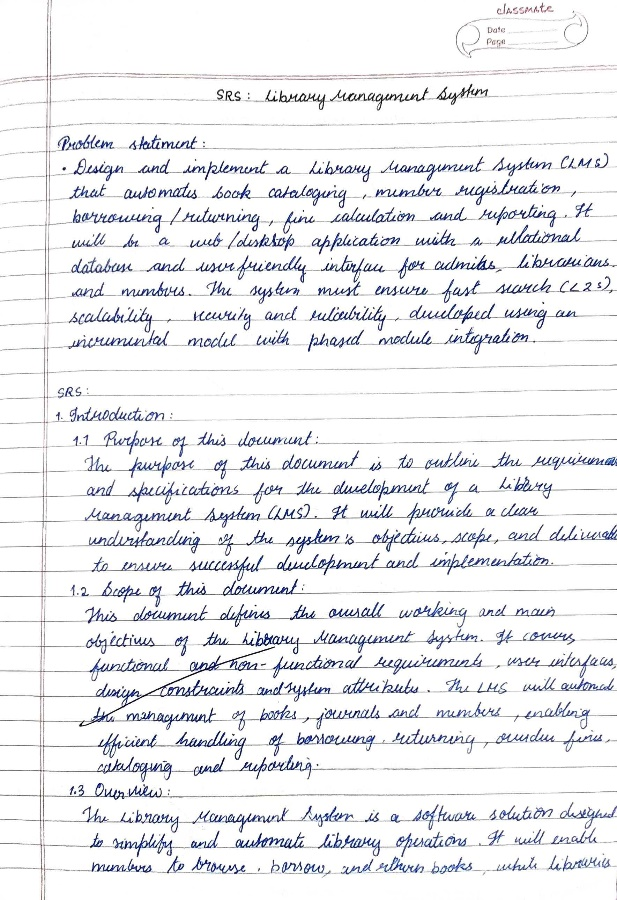 classmate
Date
Page
SRS : Library Management System
Problem statement :
• Design and implement a Library Management System (LMS)
that automates book cataloging , member registration ,
borrowing / returning , fine calculation and reporting . It
will be a web / desktop application with a relational
database and user friendly interface for admins, librarians,
and members. The system must ensure fast search (<2s),
scalability , security and reliability , developed using an
incremental model with phased module integration.
SRS :
1. Introduction :
1.1 Purpose of this document :
The purpose of this document is to outline the requiremen
and specifications for the development of a Library
Management System (LMS). It will provide a clear
understanding of the system's objectives, scope, and deliverabl
to ensure successful development and implementation.
1.2 Scope of this document :
This document defines the overall working and main
objectives of the Library Management System. It covers
functional and non-functional requirements , user interfaces,
design constraints and system attributes . The LMS will automate
the management of books , journals and members , enabling
efficient handling of borrowing . returning , overdue fines,
cataloging and reporting.
1.3 Overview :
The Library Management System is a software solution designed
to simplify and automate library operations . It will enable
members to browse , borrow, and return books , while libraries